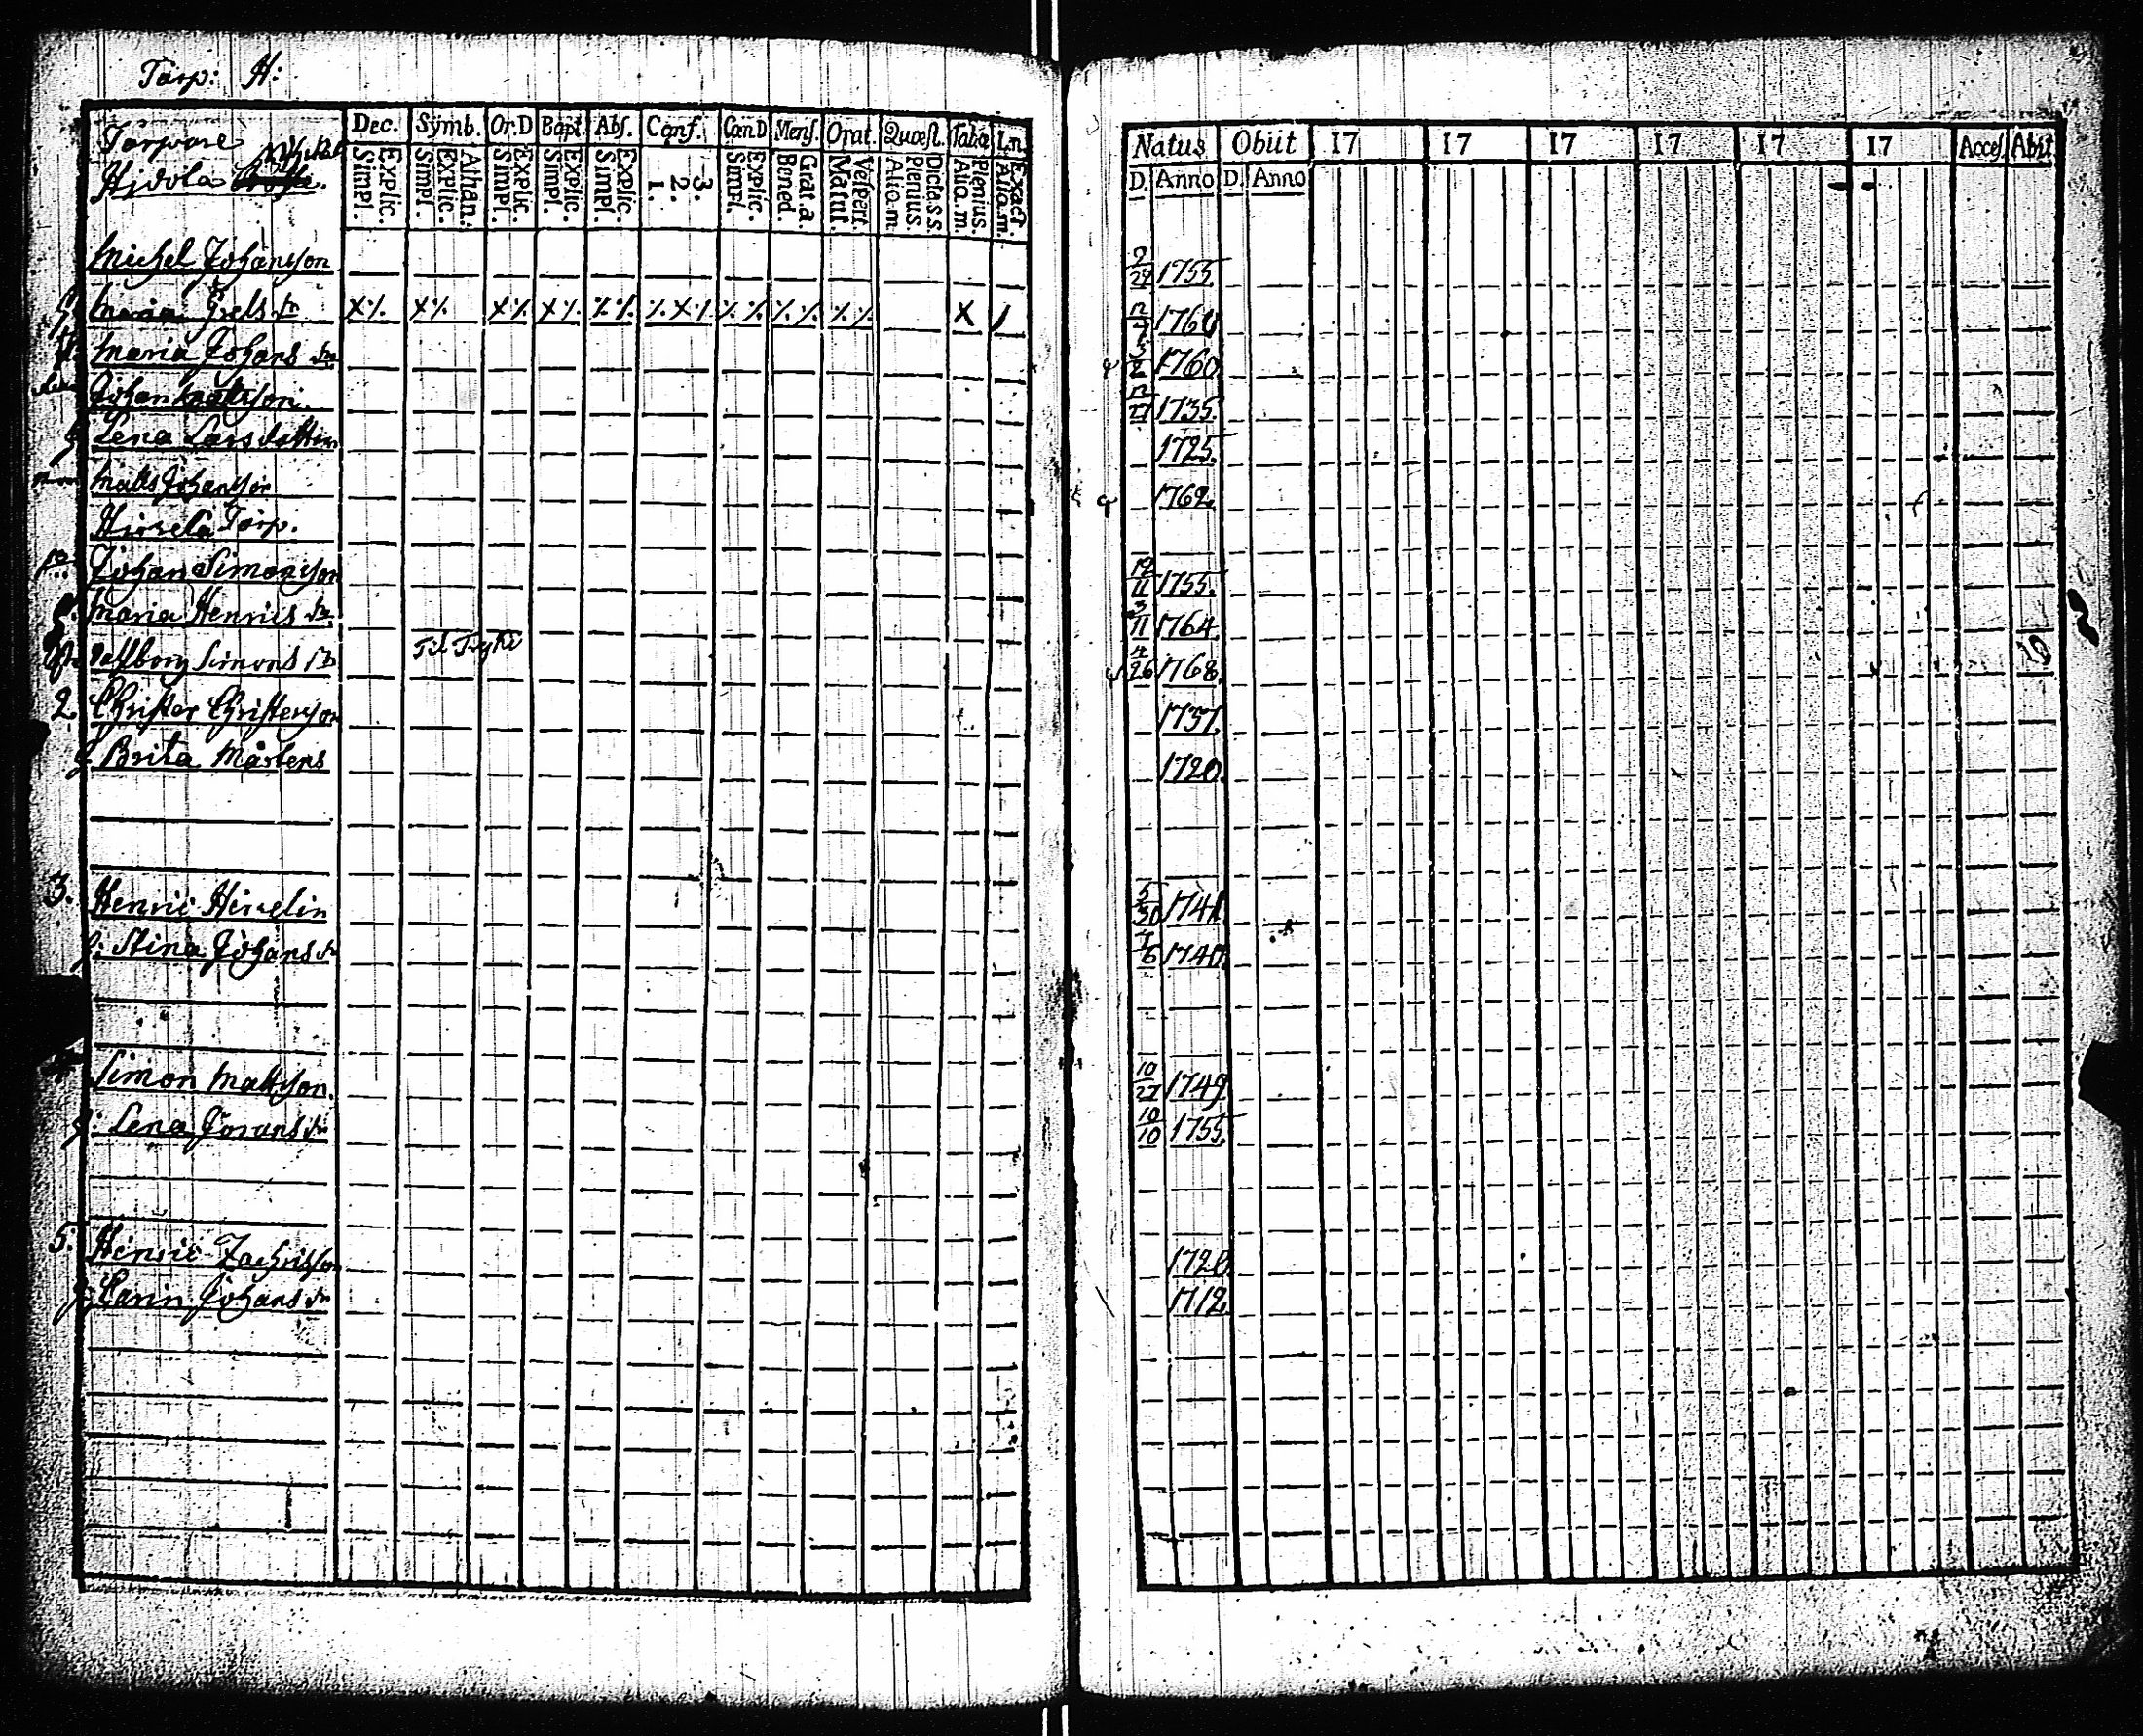 Torp: H:
Torpare
Hirvola
Dec. Symb. Or.D Bapt. Abs. Conf. Can D Mens. Orat. Quæst. Tab.æ Ln.
Simpl. Explic. Simpl. Explic. Athan. Simpl. Explic. Simpl. Explic. Simpl. Explic. 1. 2. 3. Simpl. Explic. Bened. Grat. a. Matut. Vespert. Alio. m. Plenius. Dicta S S. Alio. m. Plenius. Alio. m. Exact.
Natus Obiit 17 17 17 17 17 17 Acces. Abit
D. Anno D. Anno
Michel Johansson 1755.
Maria Grels dr X٪ X٪ X٪ X٪ ٪٪ ٪X٪ ٪٪ ٪٪ ٪٪ X / 1760
Maria Johans dr 1760
Johan Mattsson. 12/27 1735.
Lena Lars dotter 1725.
Matts Johansson 1762.
Hirvela Torp.
Johan Simonsson 12/11 1755.
Maria Henrics dr. 3/11 1764.
Valborg Simons dr 4/26 1768.
2. Christer Christersson 1737.
Brita Mårtens 1720.
3. Henric Hirvelin 5/30 1741
Stina Johans dr 1740.
Simon Mattsson. 10/27 1749.
Lena Jörans dr 10/10 1755.
5. Henric Zachrisson 1720
Carin Johans dr 1712.